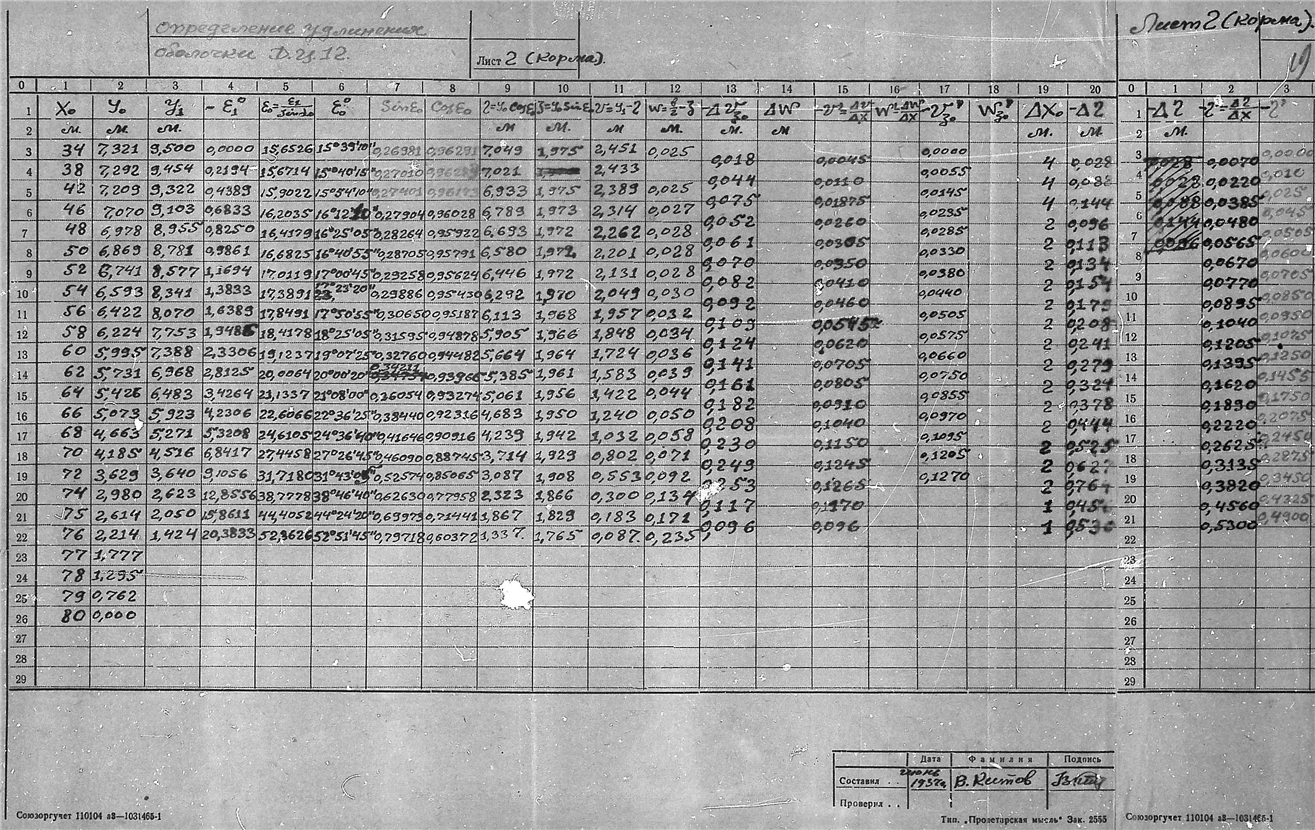 Определение удлинения
оболочки Д.Ц.12.
Лист 2 (корма).
Лист 2 (корма).
19
0 1 2 3 4 5 6 7 8 9 10 11 12 13 14 15 16 17 18 19 20 0 1 2 3
1 X₀ y₀ y₁ -ε₁° ε₀° Sinε₀ Cosε₀ ΔW ΔX₀ -Δ2 1 -Δ2
2 м. м. м. м м. м м м м м. м. 2 м.
3 34 7,321 9,500 0,0000 15,6526 15°39'10" 0,26981 0,96291 7,049 1,975 2,451 0,025 0,018 0,0045 0,0000 4 0,028 3 0,0070
4 38 7,292 9,454 0,2194 15,6714 15°40'15" 0,27010 7,021 2,433 0,044 0,0110 0,0055 4 0,088 4 0,0220
5 42 7,209 9,322 0,4389 15,9022 15°54'10" 0,27401 0,96173 6,933 1,975 2,389 0,025 0,075 0,01875 0,0145 4 0,144 5 0,0385
6 46 7,070 9,103 0,6833 16,2035 16°12'10" 0,27904 0,96028 6,789 1,973 2,314 0,027 0,052 0,0260 0,0235 2 0,096 6 0,0480
7 48 6,978 8,955 0,8250 16,4179 16°25'05" 0,28264 0,95922 6,693 1,972 2,262 0,028 0,061 0,0305 0,0285 2 0,113 7 0,0565
8 50 6,869 8,781 0,9861 16,6825 16°40'55" 0,28705 0,95791 6,580 1,972 2,201 0,028 0,070 0,0350 0,0330 2 0,134 8 0,0670 0,0600
9 52 6,741 8,577 1,1694 17,0119 17°00'45" 0,29258 0,95624 6,446 1,972 2,131 0,028 0,082 0,0410 0,0380 2 0,154 9 0,0770 0,0705
10 54 6,593 8,341 1,3833 17,3891 17°23'20" 0,29886 0,95430 6,292 1,970 2,049 0,030 0,092 0,0460 0,0440 2 0,179 10 0,0895
11 56 6,422 8,070 1,6389 17,8491 17°50'55" 0,30650 0,95187 6,113 1,968 1,957 0,032 0,109 0,0545 0,0505 2 0,208 11 0,1040 0,0950
12 58 6,224 7,753 1,9486 18,4178 18°25'05" 0,31595 0,94878 5,905 1,966 1,848 0,034 0,124 0,0620 0,0575 2 0,241 12 0,1205 0,1075
13 60 5,995 7,388 2,3306 19,1237 19°07'25" 0,32760 0,94482 5,664 1,964 1,724 0,036 0,141 0,0705 0,0660 2 0,279 13 0,1395 0,1250
14 62 5,731 6,968 2,8125 20,0064 20°00'20" 0,34211 0,93966 5,385 1,961 1,583 0,039 0,161 0,0805 0,0750 2 0,324 14 0,1620 0,1455
15 64 5,426 6,483 3,4264 21,1337 21°08'00" 0,36054 0,93274 5,061 1,956 1,422 0,044 0,182 0,0910 0,0855 2 0,378 15 0,1890 0,1750
16 66 5,073 5,923 4,2306 22,6066 22°36'25" 0,38440 0,92316 4,683 1,950 1,240 0,050 0,208 0,1040 0,0970 2 0,444 16 0,2220 0,2078
17 68 4,663 5,271 5,3208 24,6105 24°36'40" 0,41646 0,90916 4,239 1,942 1,032 0,058 0,230 0,1150 0,1095 2 0,525 17 0,2625 0,2450
18 70 4,185 4,516 6,8417 27,4458 27°26'45" 0,46090 0,88745 3,714 1,929 0,802 0,071 0,249 0,1245 0,1205 2 0,627 18 0,3135 0,2875
19 72 3,629 3,640 9,1056 31,7180 0,52574 0,85065 3,087 1,908 0,553 0,092 0,253 0,1265 0,1270 2 0,764 19 0,3820 0,3450
20 74 2,980 2,623 12,8556 38,7778 38°46'40" 0,62630 0,77958 2,323 1,866 0,300 0,134 0,117 0,1170 1 0,456 20 0,4560 0,4325
21 75 2,614 2,050 15,8611 44,4052 44°24'20" 0,69973 0,71441 1,867 1,829 0,183 0,171 0,096 0,096 1 0,530 21 0,5300 0,4900
22 76 2,214 1,424 20,3833 52,8626 52°51'45" 0,79718 0,60372 1,337 1,765 0,087 0,235 22
23 77 1,777 23
24 78 1,295 24
25 79 0,762 25
26 80 0,000 26
27 27
28 28
29 29
Дата Фамилия Подпись
Составил . . 1937г. В. Китов
Проверил . .
Союзоргучет 110104 аЗ—1031465-1 Тип. „Пролетарская мысль“ Зак. 2555 Союзоргучет 110104 аЗ—1031465-1